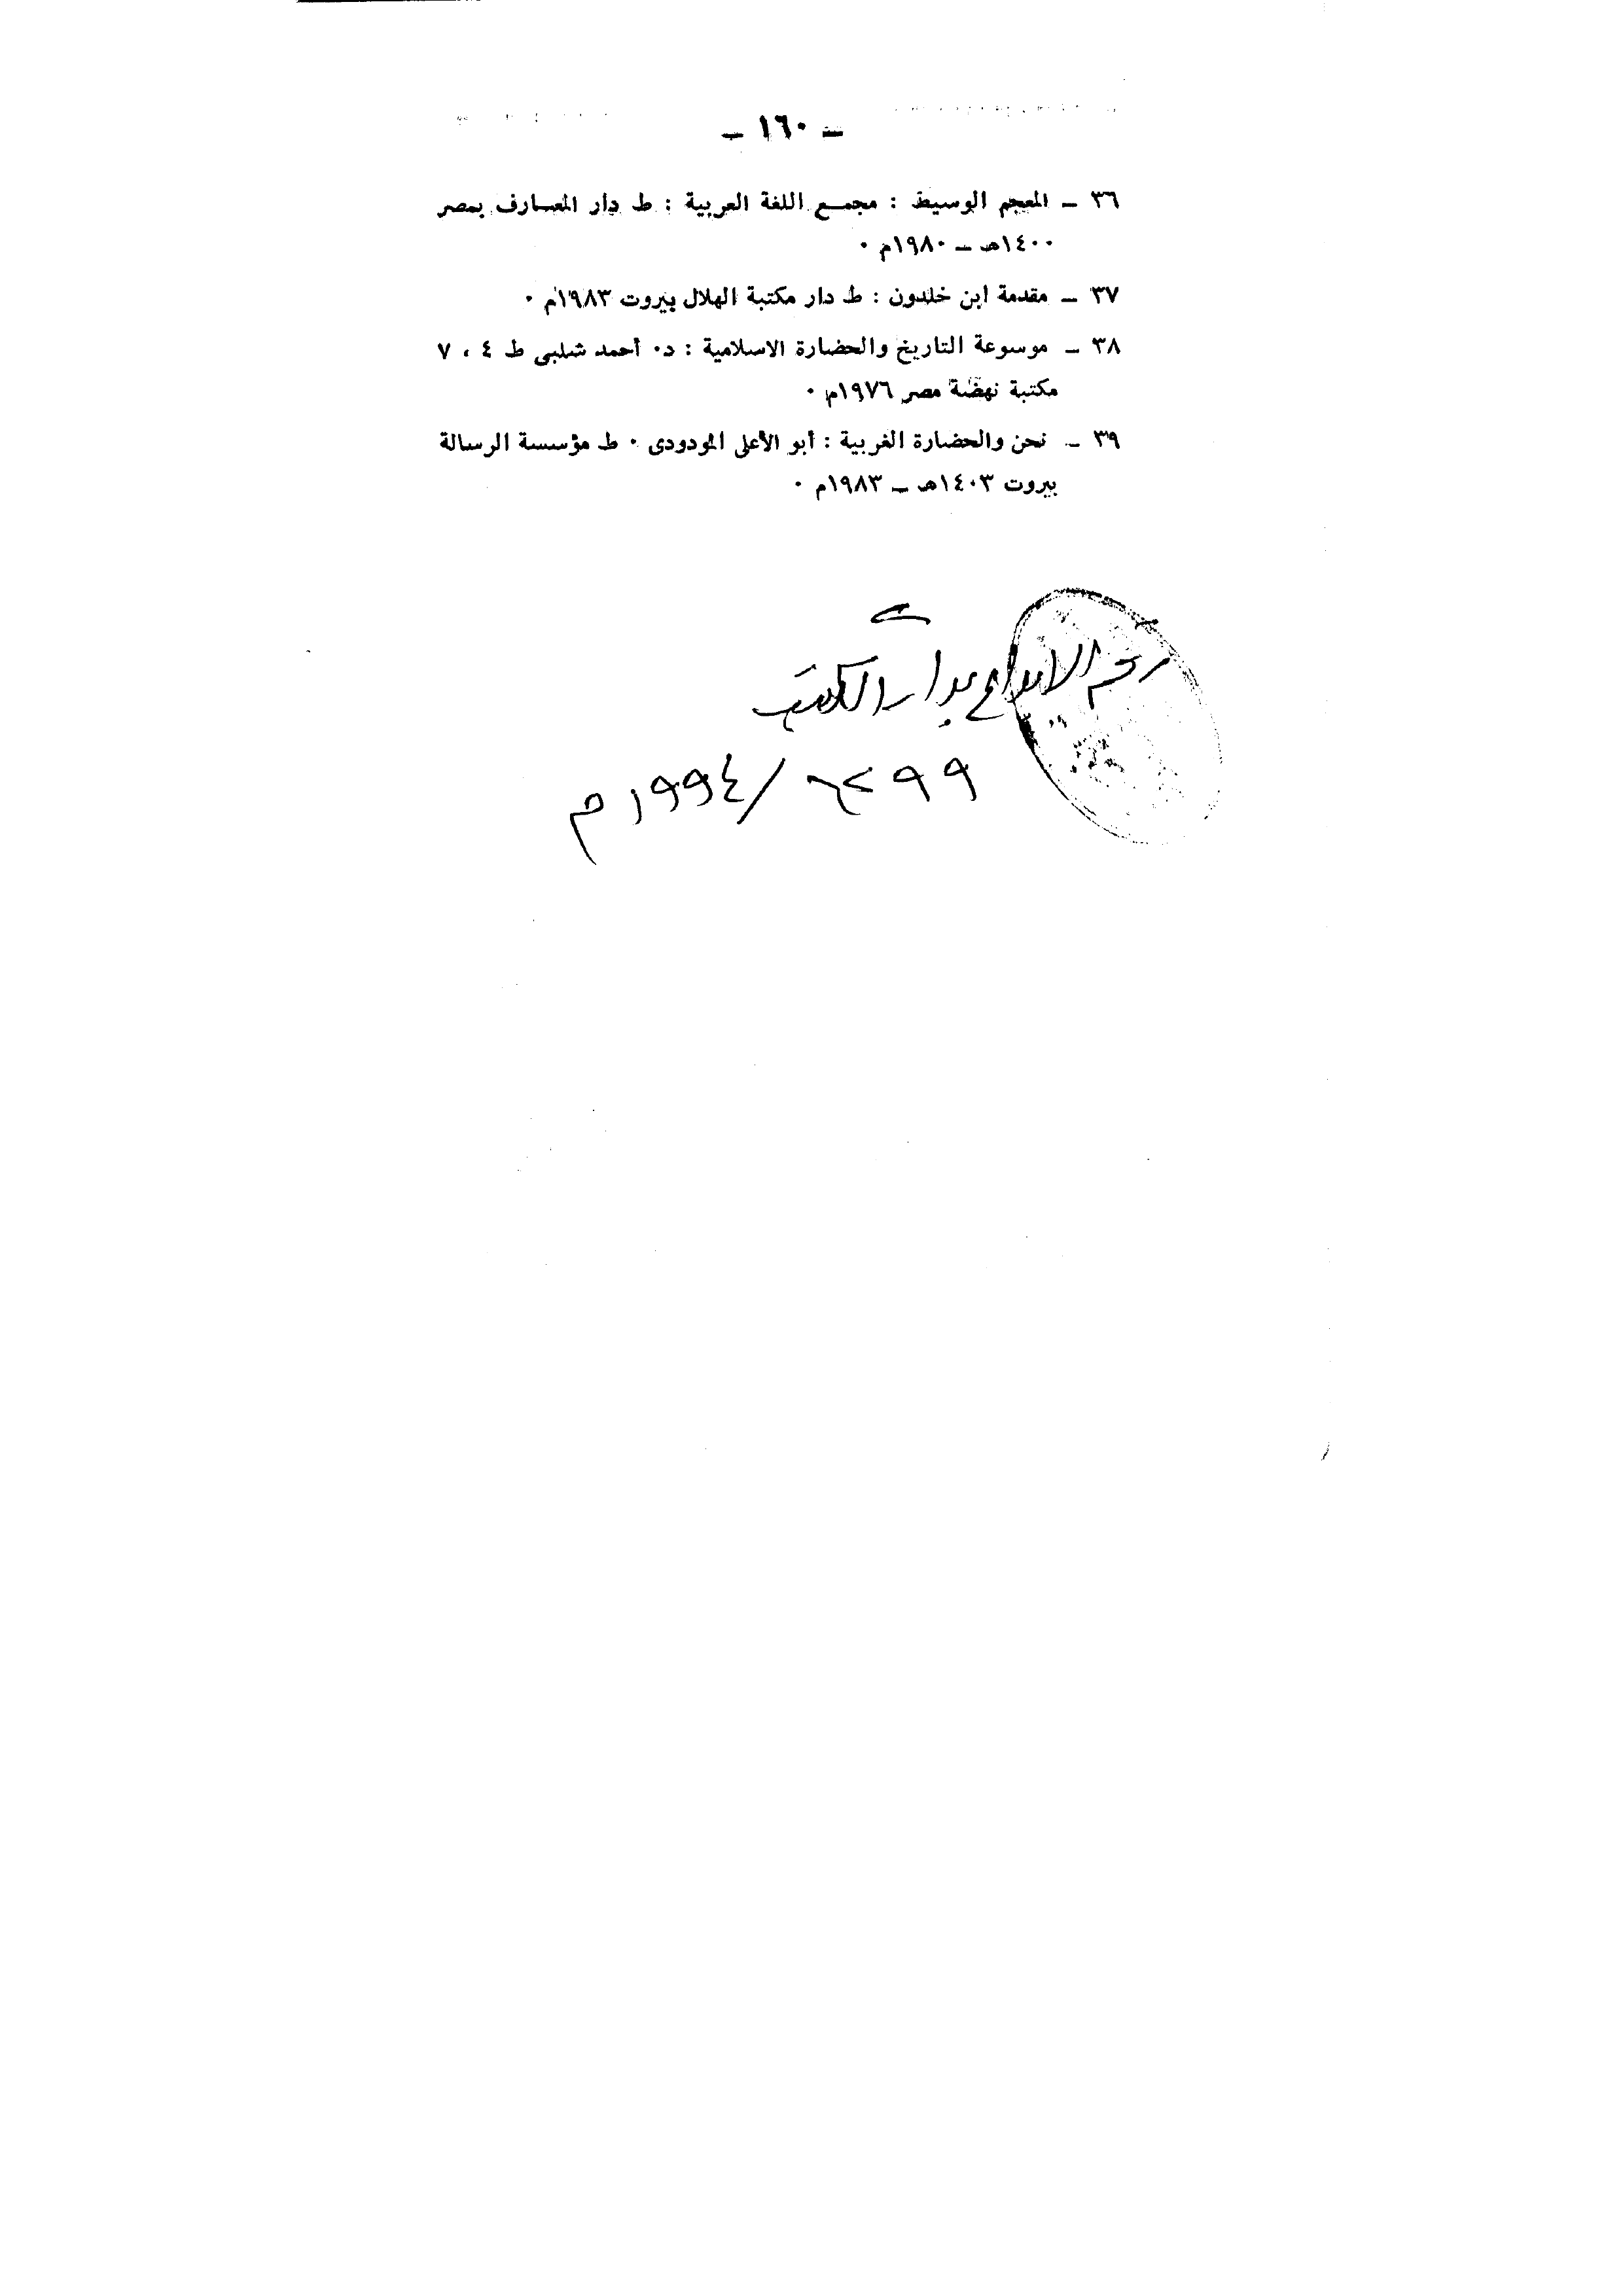 ـ ١٦٠ ـ
٣٦ ـ المعجم الوسيط : مجمع اللغة العربية : ط دار المعارف بمصر
١٤٠٠هـ ـ ١٩٨٠م ٠
٣٧ ـ مقدمة ابن خلدون : ط دار مكتبة الهلال بيروت ١٩٨٣م ٠
٣٨ ـ موسوعة التاريخ والحضارة الاسلامية : د٠ أحمد شلبى ط ٤ ، ٧
مكتبة نهضة مصر ١٩٧٦م ٠
٣٩ ـ نحن والحضارة الغربية : أبو الأعلى المودودى ٠ ط مؤسسة الرسالة
بيروت ١٤٠٣هـ ـ ١٩٨٣م ٠
رقم الايداع بدار الكتب
/ ١٩٩٤م